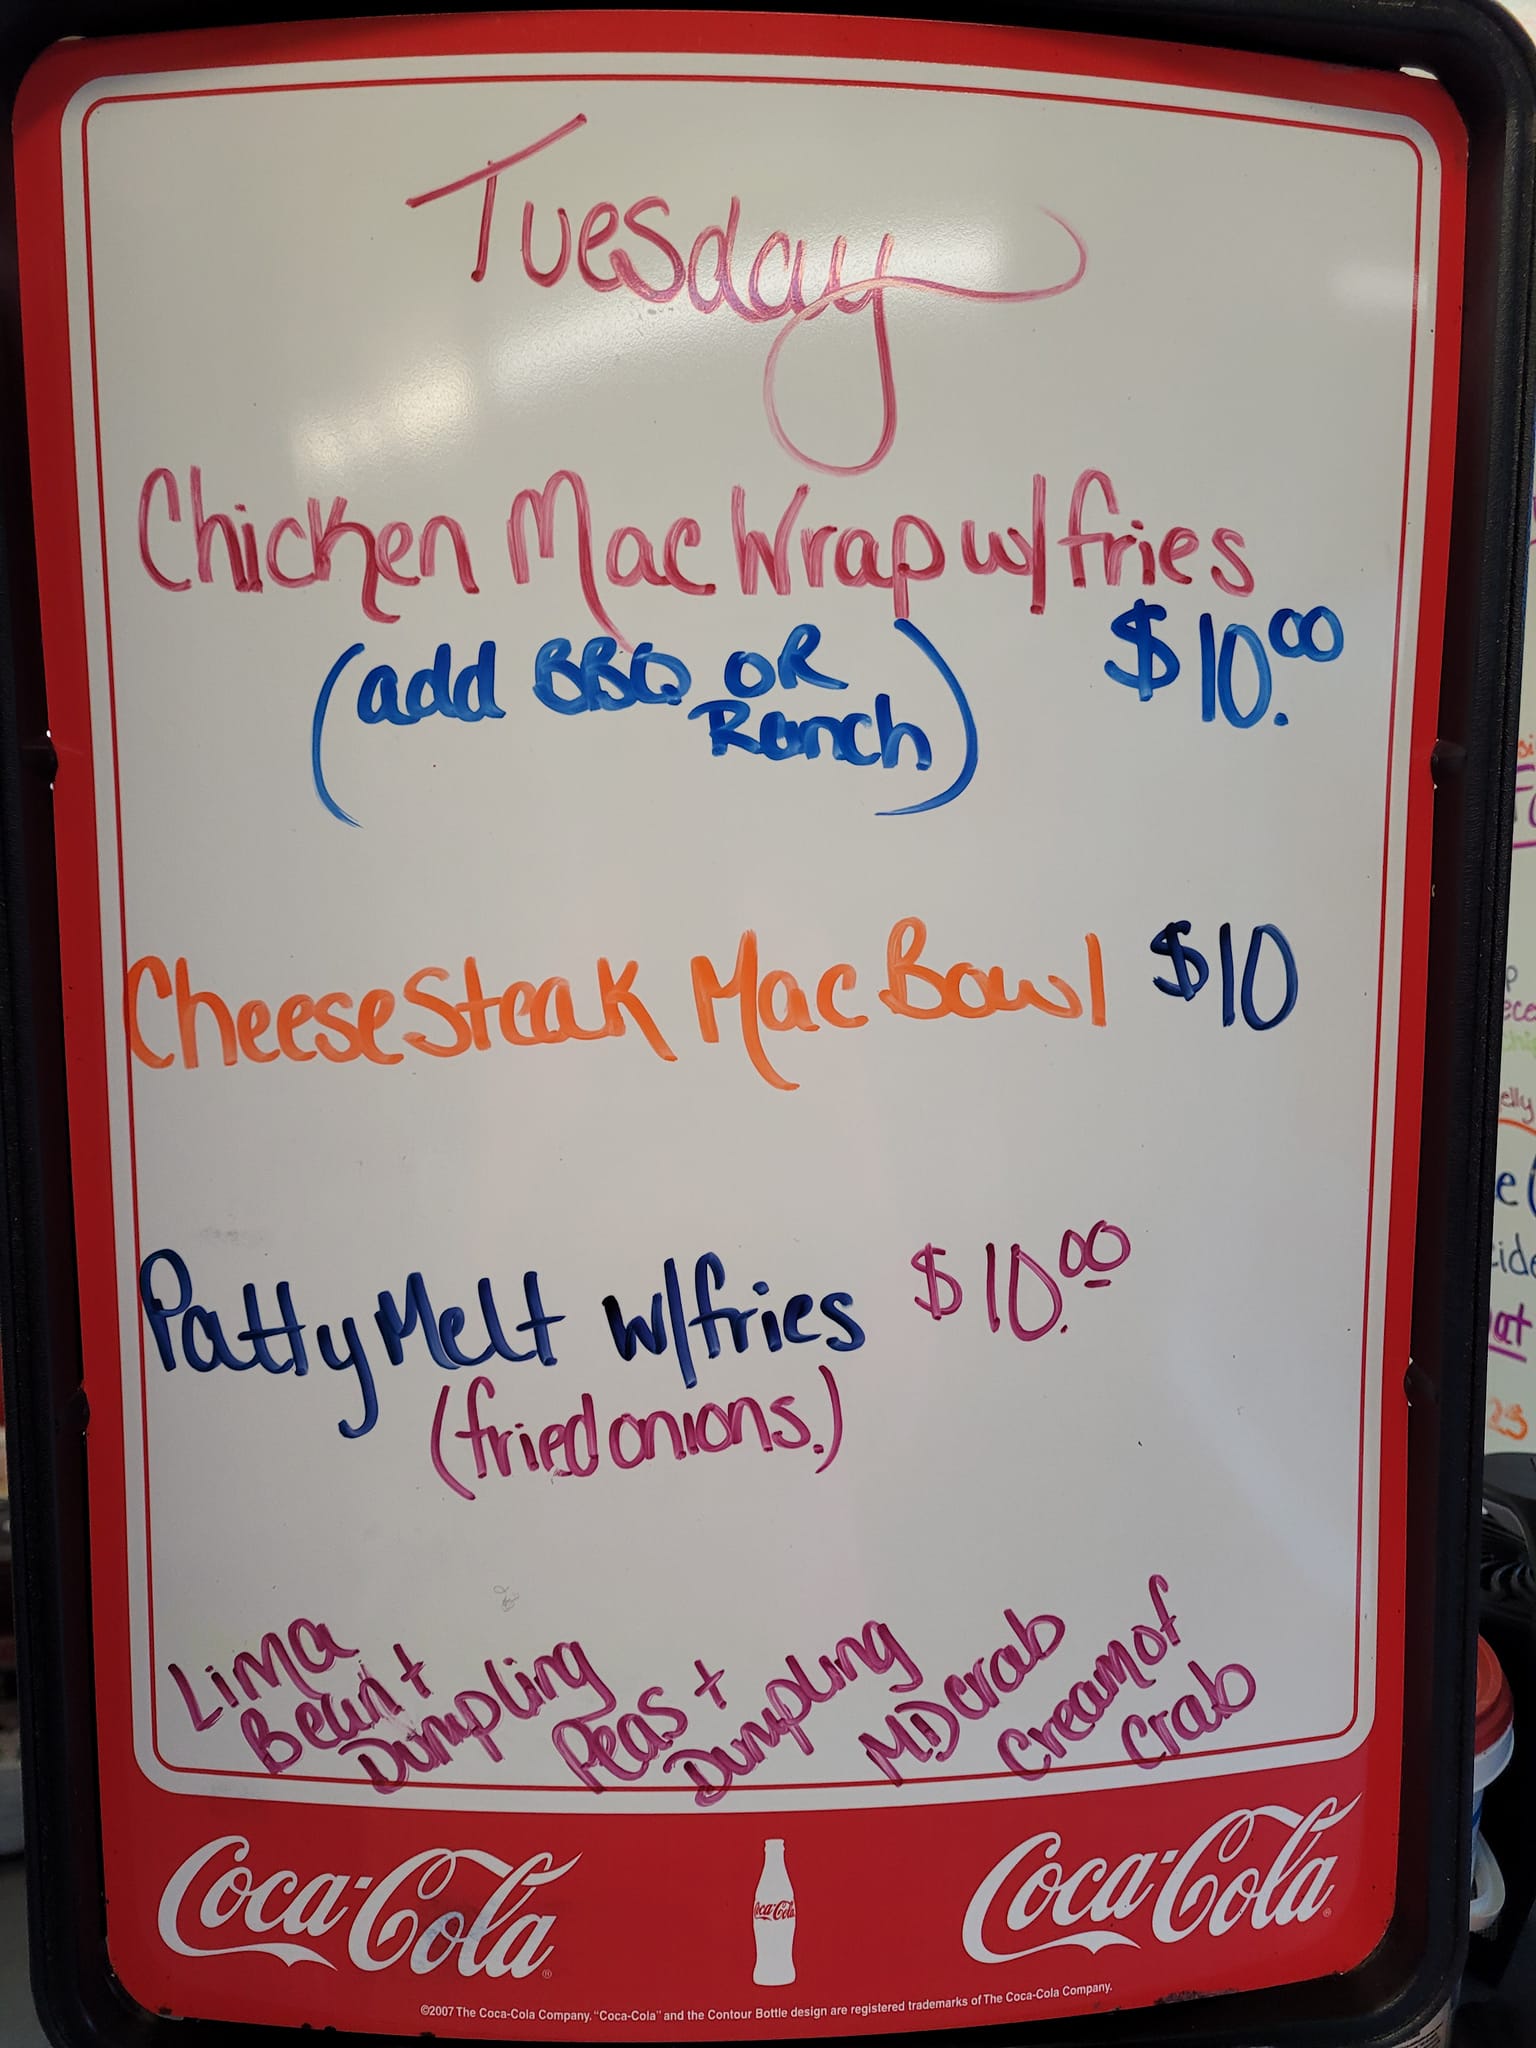 Tuesday
Chicken Mac Wrap w/fries
(add BBQ OR
Ranch)
$10.00
CheeseSteak Mac Bowl $10
Patty Melt w/fries $10.00
(fried onions.)
Lima
Bean +
Dumpling
Peas +
Dumpling
M.D crab
Cream of
Crab
Coca-Cola
Coca-Cola
Coca-Cola
©2007 The Coca-Cola Company. "Coca-Cola" and the Contour Bottle design are registered trademarks of The Coca-Cola Company.